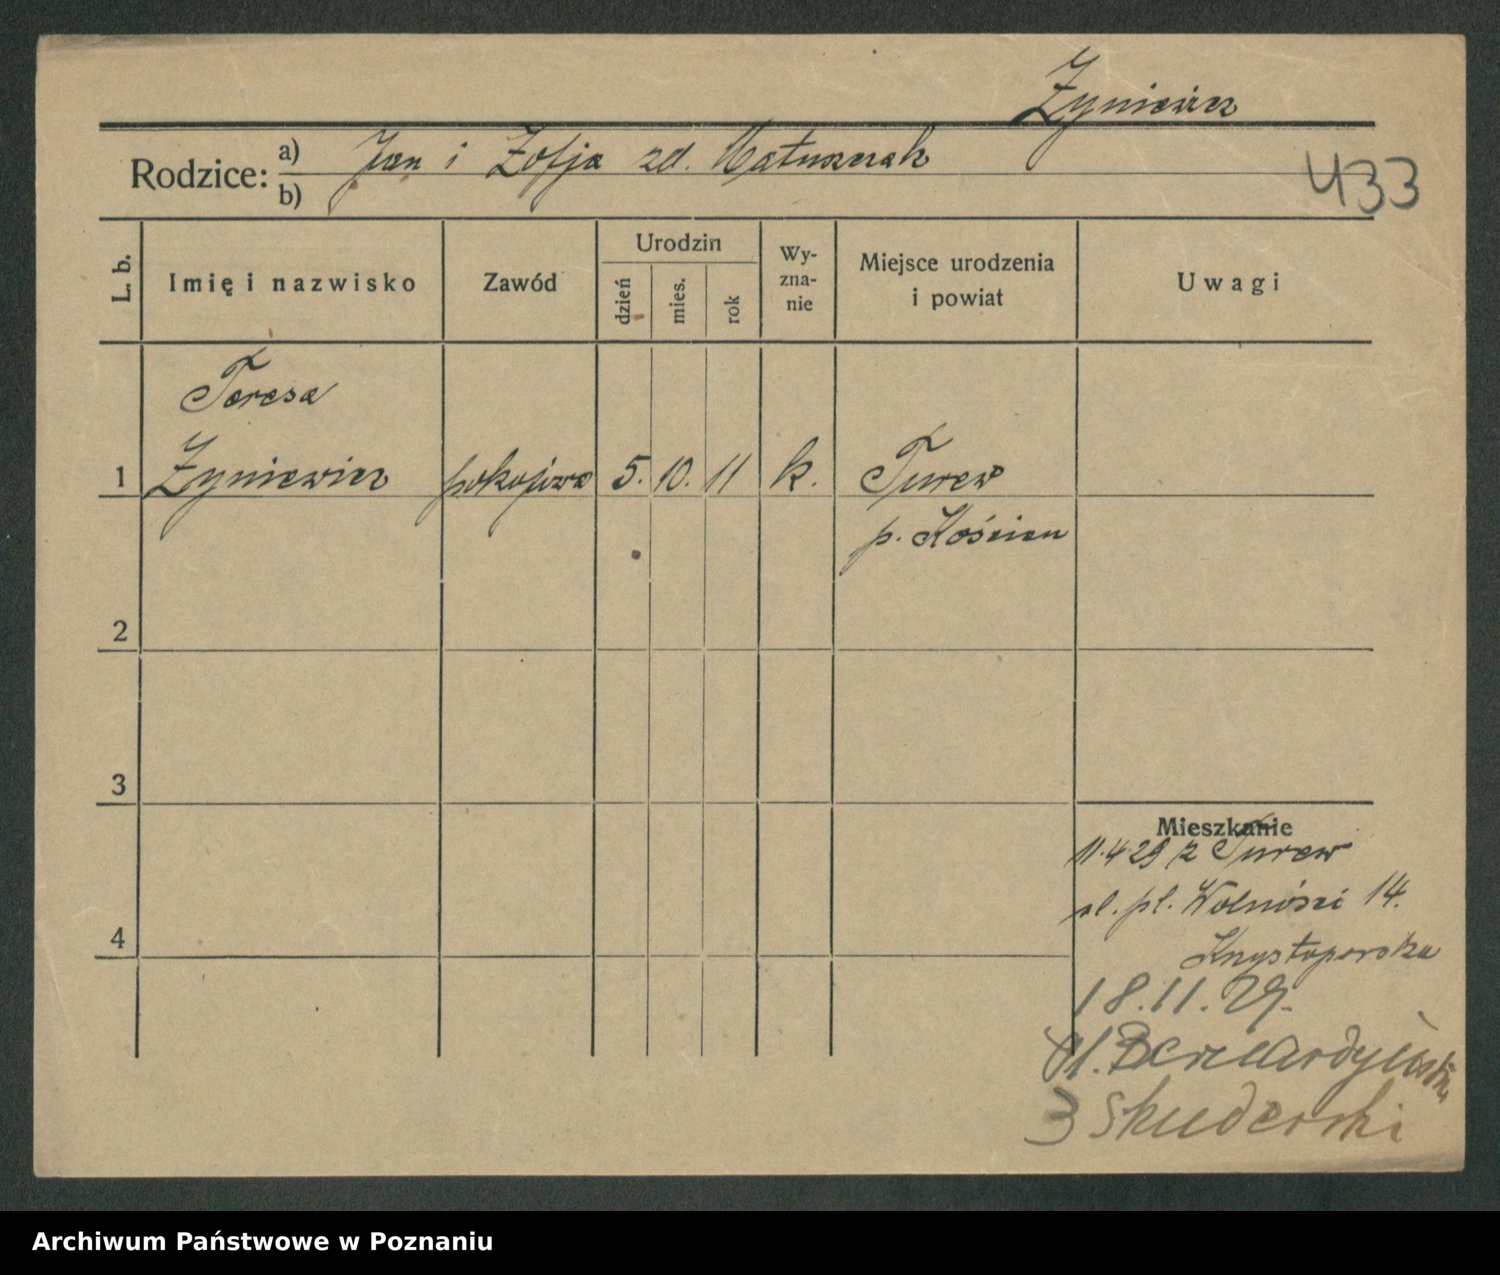 Zyniewicz
Rodzice: a) Jan i Zofja zd. Matuszczak
b)
433
L. b.
Imię i nazwisko
Zawód
Urodzin
dzień
mies.
rok
Wy-
zna-
nie
Miejsce urodzenia
i powiat
Uwagi
Teresa
1 Zyniewicz pokojowa 5. 10. 11 k. Turew
p. Kościan
2
3
4
Mieszkanie
11.4.29 z Turew
pl. Wolności 14.
18.11.29.
Pl. Bernardyński
3 Skuderski
Archiwum Państwowe w Poznaniu